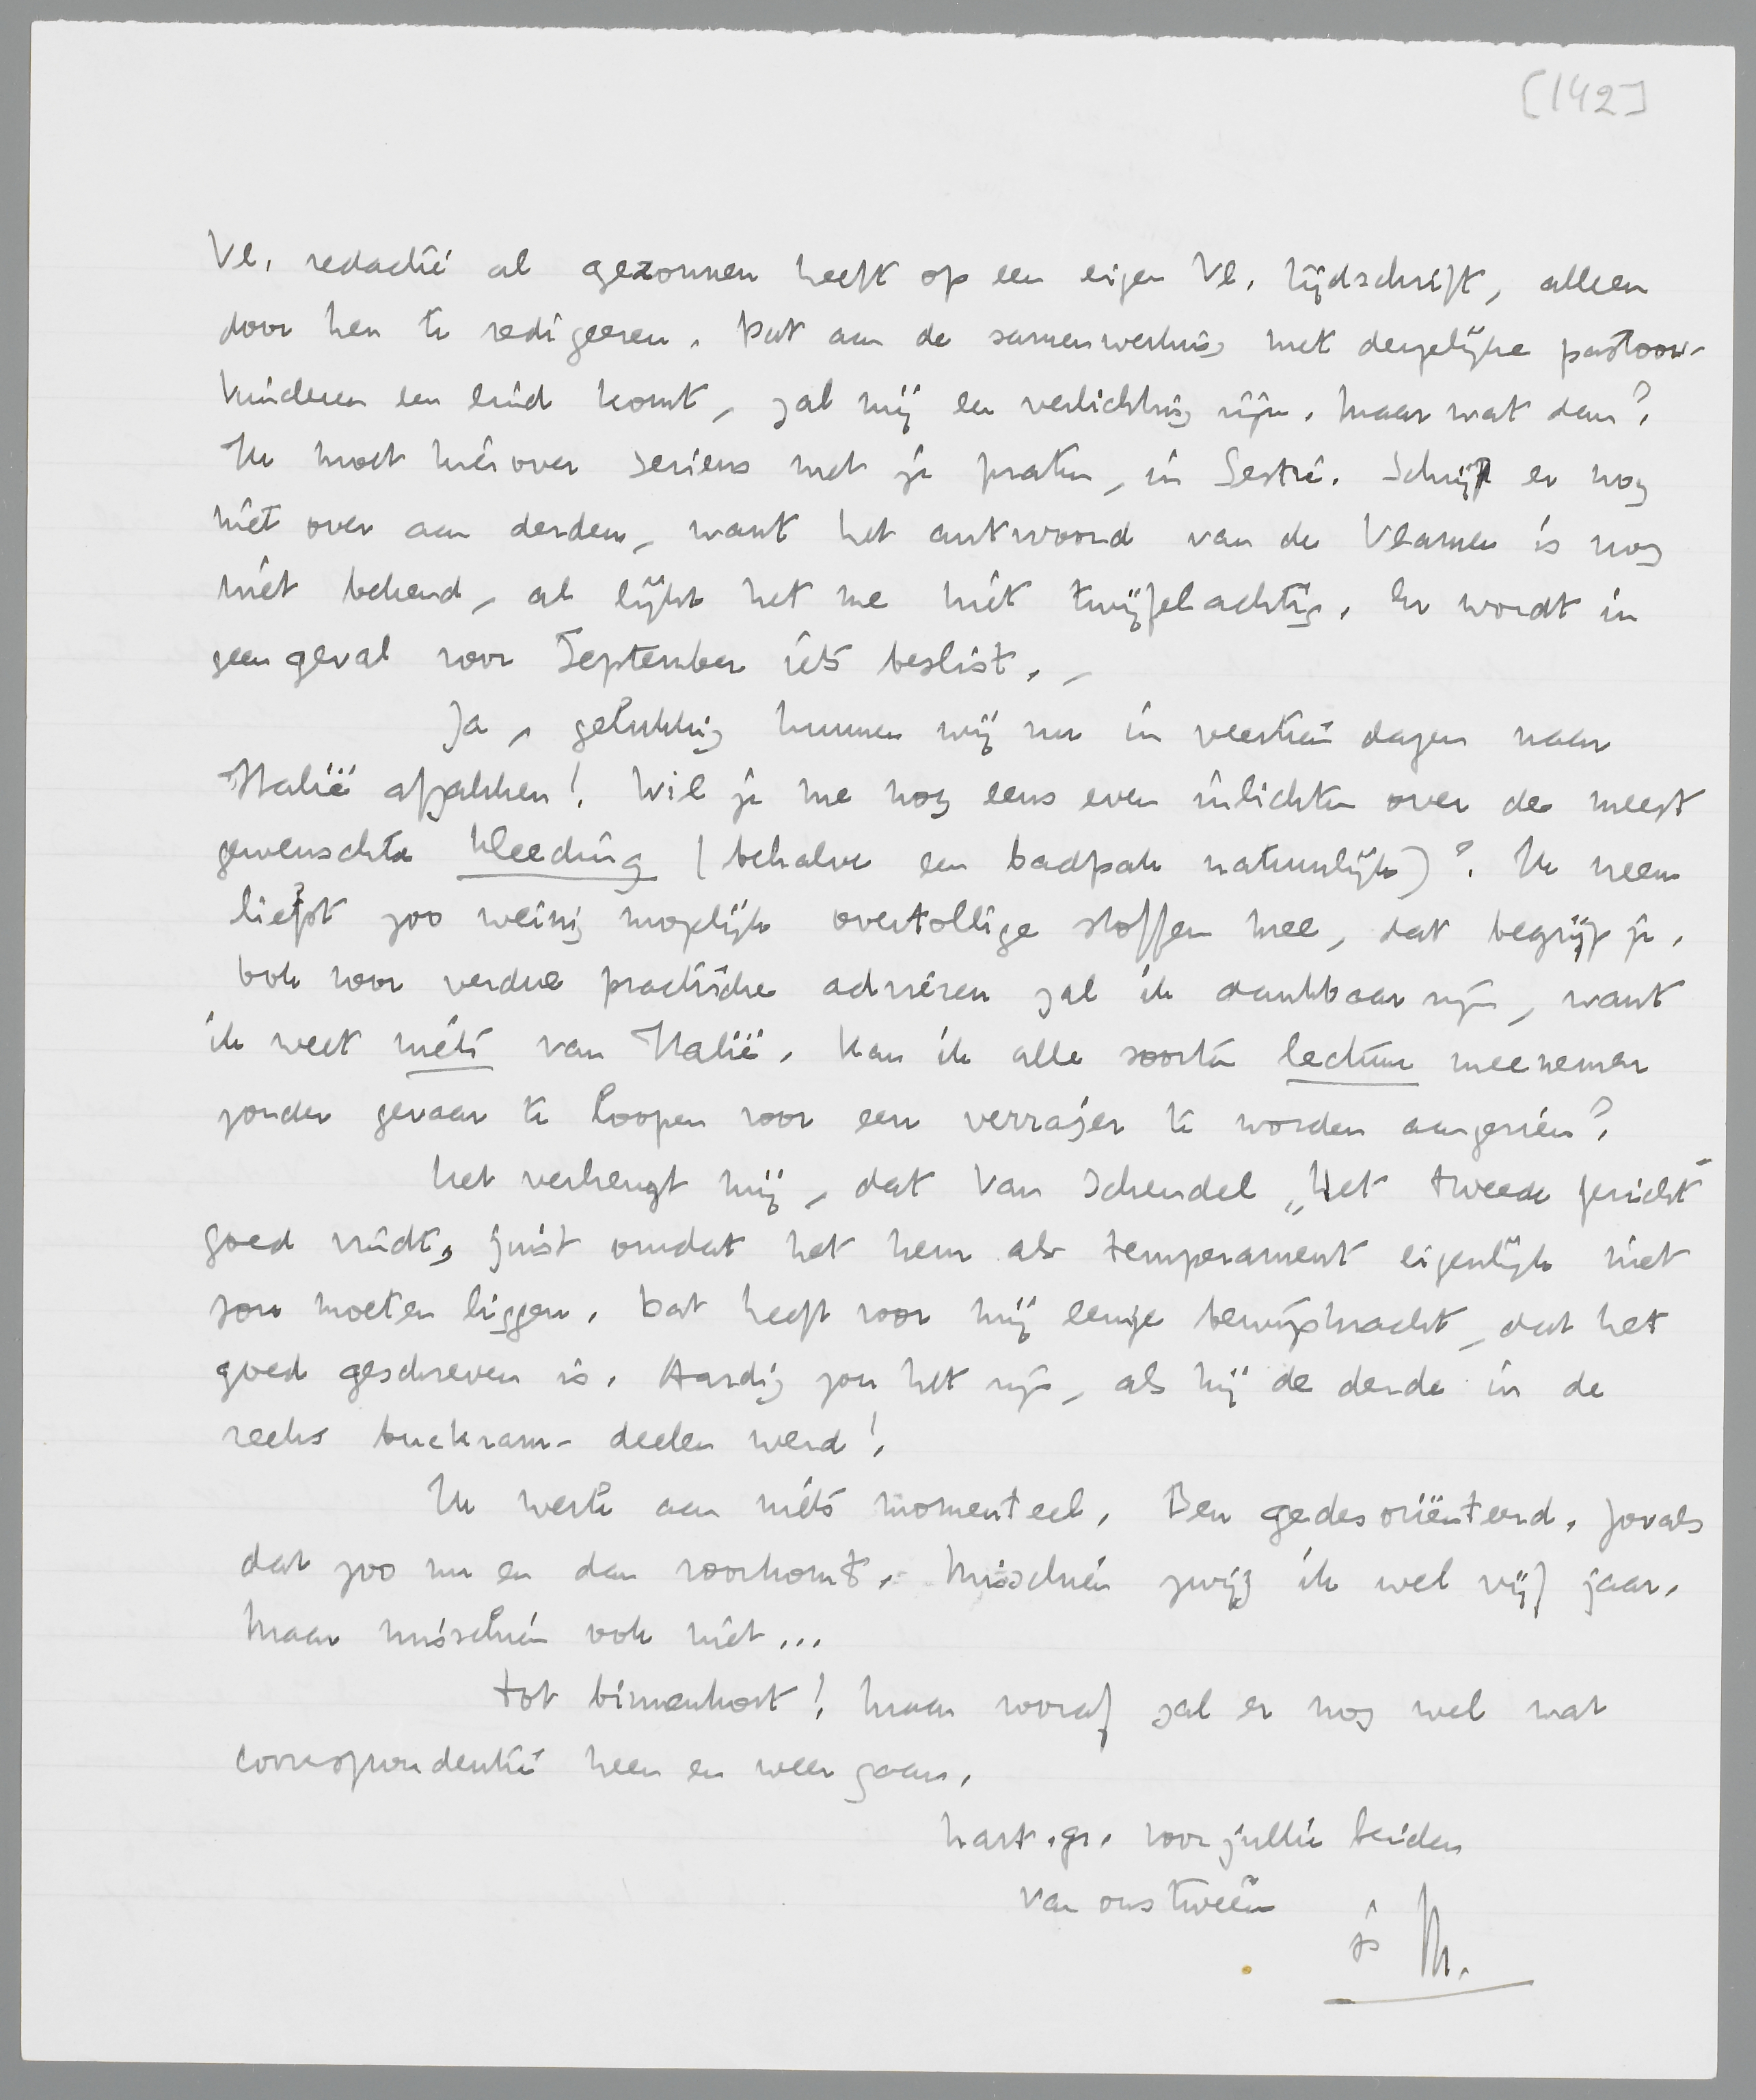 [142]
Vl. redactie al gezonnen heeft op een eigen Vl. tijdschrift, alleen
door hen te redigeeren. Dat aan de samenwerking met dergelijke pastoor-
kinderen een eind komt, zal mij een verlichting zijn. Maar wat dan?
Ik moet hierover serieus met je praten, in Sestri. Schrijf er nog
niet over aan derden, want het antwoord van de Vlamen is nog
niet bekend, al lijkt het me niet twijfelachtig. Er wordt in
geen geval voor September iets beslist. –
Ja, gelukkig kunnen wij nu in veertien dagen naar
Italië afzakken! Wil je me nog eens even inlichten over de meest
gewenschte kleeding (behalve een badpak natuurlijk)? Ik neem
liefst zoo weinig mogelijk overtollige stoffen mee, dat begrijp je.
Ook voor verdere practische adviezen zal ik dankbaar zijn, want
ik weet niets van Italië. Kan ik alle soorten lectuur meenemen
zonder gevaar te loopen voor een verrajer te worden aangezien?
Het verheugt mij, dat Van Schendel „Het tweede gezicht"
goed vindt, juist omdat het hem als temperament eigenlijk niet
zou moeten liggen. Dat heeft voor mij eenige bewijskracht, dat het
goed geschreven is. Aardig zou het zijn, als hij de derde in de
reeks buckram-deelen werd!
Ik werk aan niets momenteel. Ben gedesoriënteerd, zooals
dat zoo nu en dan voorkomt. Misschien zwijg ik wel vijf jaar.
Maar misschien ook niet...
Tot binnenkort! Maar vooraf zal er nog wel wat
correspondentie heen en weer gaan.
Hart. gr. voor jullie beiden
van ons tweeën
je M.